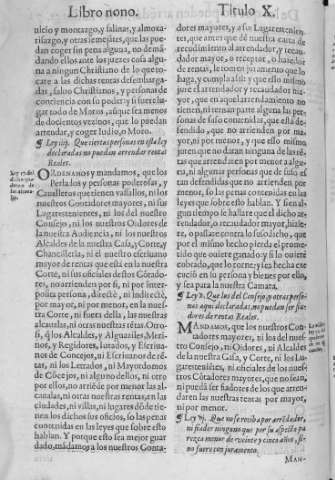 Libro nono.
Titulo X.
uicio y montazgo, y salinas, y almoxa-
rifazgo, y otras semejátes, que las pue-
dan coger sin pena alguna, no de má-
dando ellos ante los juezes cosa algu-
na a ningun Christiano de lo que to-
care a las dichas rentas del embargan-
tes, saluo Christianos, y personas de
conciencia con su poder y si fuere lu-
gar todo de Moros, aũque sea menos
de dozientos vezinos, que lo puedan
arrendar, y coger Iudio, o Moro.
¶ Ley iiij. Que ciertas personas en esta ley
declaradas no puedan arrendar rentas
Reales.
ORDENAMOS y mandamos, que los
Perlados y personas poderosas, y
Caualleros que tienen vasallos, ni los
nuestros Contadores mayores, ni sus
Lugarestenientes, ni los del nuestro
Consejo, ni los nuestros Oidores de
la nuestra Audiencia, ni los nuestros
Alcaldes de la nuestra Casa, y Corte, y
Chancilleria, ni el nuestro escriuano
mayor de rentas que está en la nuestra
Corte, ni sus oficiales destos Cótado-
res, no arrienden por si, ni por inter-
posita persona, directè, ni indirectè,
por mayor, ni por menor, en la nues-
tra Corte, ni fuera della, las nuestras
alcaualas, ni otras nuestras rétas. Otro-
si, q̃ los Alcaldes, y Alguaziles, Meri-
nos, y Regidores, Iurados, y Escriua-
nos de Concejos, ni Escriuanos de ré-
tas, ni los Letrados, ni Mayordomos
de Cõcejos, ni alguno dellos, ni otro
por ellos, no arriẽde por menor las al-
caualas, ni otras nuestras rentas, en las
ciudades, ni villas, ni lugares dõde tie-
nen los dichos sus oficios, so las penas
contenidas en las leyes que sobre esto
hablan. Y porque esto sea mejor guar-
dado, mádamos a los nuestros Conta-
dores mayores, y a sus Lugartenien-
tes, que antes que dé nuestra carta de
recudimiento al arrendador, y recau-
dador mayor, o receptor, o hazedor
de rentas, le tomen juramento que lo
haga, y cumpla assi: y que esso mismo
juren los arrendadores por menor al
dicho arrendador y recaudador ma-
yor, que en aquel arrendamiento no
tienen, ni ternan parte alguna las per-
sonas de suso contenidas, que está de-
fendido, que no arrienden por ma-
yor, ni por menor, ni los que por esta
ley mandamos que no arrienden por
menor no puedan ser fiadores de los
que arrendaren por menor a algu-
na, ni algunas personas de que de suso es-
tan defendidas que no arrienden por
menor, so las penas contenidas en las
leyes que sobre esto hablan. Y si en al-
gun tiempo se hallare que el dicho ar-
rendador, o recaudador mayor, hizie-
re, o passare contra lo suso dicho, que
por el mismo hecho pierda el prome-
tido que ouiere ganado: y si lo ouiere
cobrado, que lo torne: y sea hecha exe-
cucion en su persona y bienes por ello,
y sea para la nuestra Camara.
¶ Ley v. Que los del Consejo, y otras perso-
nas aqui declaradas, no puedan ser fia-
dores de rentas Reales.
MANDAMOS, que los nuestros Con-
tadores mayores, ni los del nues-
tro Consejo, ni Oidores, ni Alcaldes
de la nuestra Casa, y Corte, ni los Lu-
garestenientes, ni oficiales de los nues-
tros Cótadores mayores, que no sean,
ni pueda ser fiadores de los que arren-
daren las nuestras rentas por mayor,
ni por menor.
¶ Ley vj. Que no se reciba por arrẽdador,
ni fiador ninguno que por su aspecto pa-
rezca menor de veinte y cinco años, si
no fuere con juramento.
MAN-